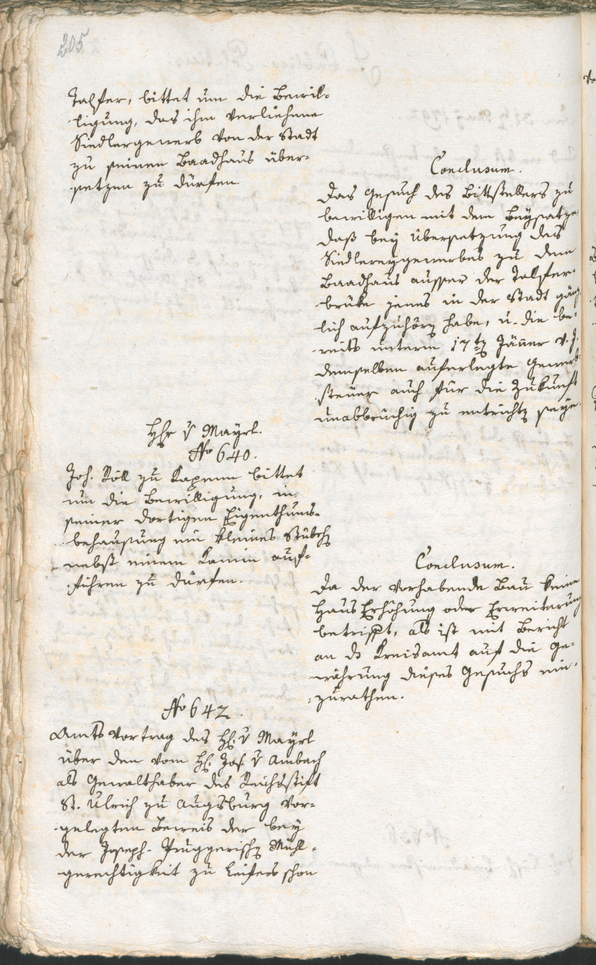 205
Talfer, bittet um die Bewil-
ligung, das ihm verliehene
Siedlergewerb von der Stadt
zu seinem Baadhaus über-
setzen zu dürfen
Conclusum.
Das Gesuch des Bittstellers zu
bewilligen mit dem Beysatze
daß bey Übersetzung des
Siedlereygewerbes zu dem
Baadhaus ausser der Talfer-
brüke jenes in der Stadt gänz-
lich aufzuhörn habe, u. die be-
reits unterm 17ten Jäner d. J.
demselben auferlegte Gewerb-
steuer auch für die Zukunft
unabbrüchig zu entrichten seye
Hr v Mayrl.
No 640.
Joh. Röll zu Kapenn bittet
um die Bewilligung, in
seiner dortigen Eigenthums-
behausung ein kleines Stübchen
nebst einem Kamin auf-
führen zu dürfen.
Conclusum.
Da der vorhabende Bau keine
Haus Erhöhung oder Erweiterung
betrift, als ist mit Bericht
an das Kreisamt auf die Ge-
währung dieses Gesuchs ein-
zurathen.
No 642.
Amts Vortrag des H: v Mayrl
über den vom H: Jos. v Ambach
als Gewalthaber des Reichsstift
St. Ulrich zu Augsburg vor-
gelegten Beweis der bey
der Joseph Pruggerischen Mühl-
gerechtigkeit zu Leifers schon